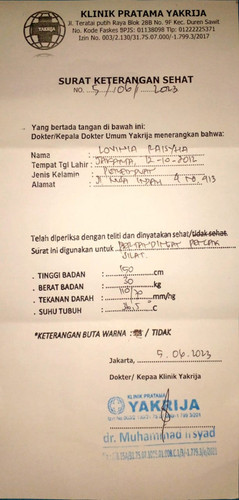 KLINIK PRATAMA YAKRIJA
Jl. Teratai putih Raya Blok 28B No. 9F Kec. Duren Sawit
No. Kode Faskes BPJS: 01138098 Tlp: 01222225371
Izin No. 003/2.130/31.75.07.000/-1.799.3/2017
YAKRIJA
SURAT KETERANGAN SEHAT
NO. 5 /06/ 2023
Yang bertada tangan di bawah ini:
Dokter/Kepala Dokter Umum Yakrija menerangkan bahwa:
Nama : LOVINIA RAISYHA
Tempat Tgl Lahir : JAKARTA, 12-10-2012
Jenis Kelamin : PEREMPUAN
Alamat : Jl INDAH 4 No 913
Telah diperiksa dengan teliti dan dinyatakan sehat/tidak sehat.
Surat Ini digunakan untuk PERTANDINGAN PENCAK
SILAT.
. TINGGI BADAN : 150 cm
. BERAT BADAN : 30 kg
. TEKANAN DARAH : 110/70 mm/hg
. SUHU TUBUH : 36.5 c
*KETERANGAN BUTA WARNA : / TIDAK
Jakarta, 5.06.2023
Dokter/ Kepaa Klinik Yakrija
KLINIK PRATAMA
YAKRIJA
dr. Muhammad Irsyad